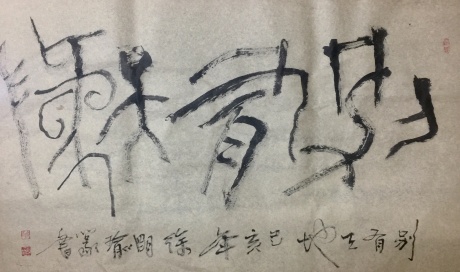 别有天地
别有天地己亥年徐明瑜書